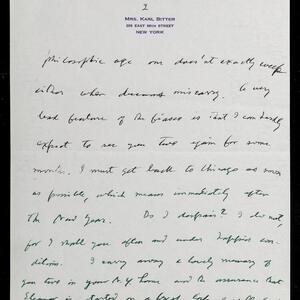 2
MRS. KARL BITTER
NEW YORK
philosophic age one does'nt exactly weep
either when dreams miscarry. A very
bad feature of the fiasco is that I can hardly
expect to see you two again for some
months. I must get back to Chicago as soon
as possible, which means immediately after
the New Year. Do I despair? I do not,
for I shall you often and under happier con-
ditions. I carry away a lovely memory of
you two in your N.Y. home and the assurance that
Eleanor is started on a